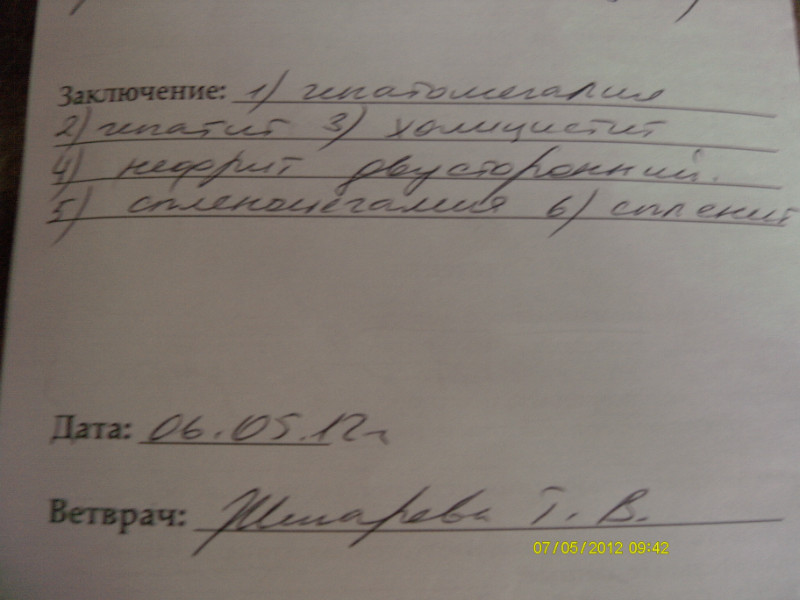 Заключение: 1) гепатомегалия
2) гепатит 3) холицистит
4) нефрит двусторонний.
5) спленомегалия 6) спленит
Дата: 06.05.12г
Ветврач: Т. В.
07/05/2012 09:42